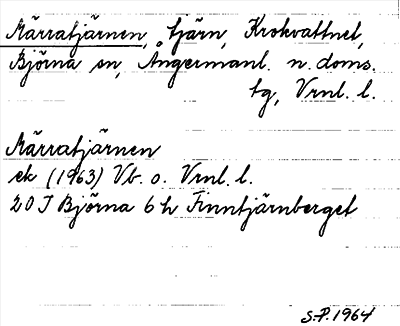 Märratjärnen, tjärn, Krokvattnet,
Björna sn, Ångermanl. n. doms.
tg, Vrnl. l.
Märratjärnen
ek (1963) Vb. o. Vrnl. l.
20 J Björna 6 h Finntjärnberget
S.P. 1964